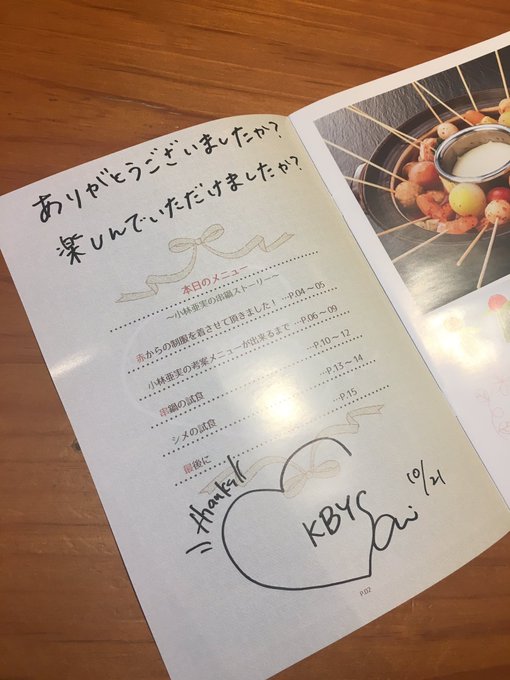 ありがとうございましたか?
楽しんでいただけましたか?
本日のメニュー
〜小林亜実の串鍋ストーリー〜
赤からの制服を着させて頂きました!…P.04〜05
小林亜実の考案メニューが出来るまで…P.06〜09
串鍋の試食…P.10〜12
シメの試食…P.13〜14
最後に…P.15
thanks!!
KBYS
10/21
P.02